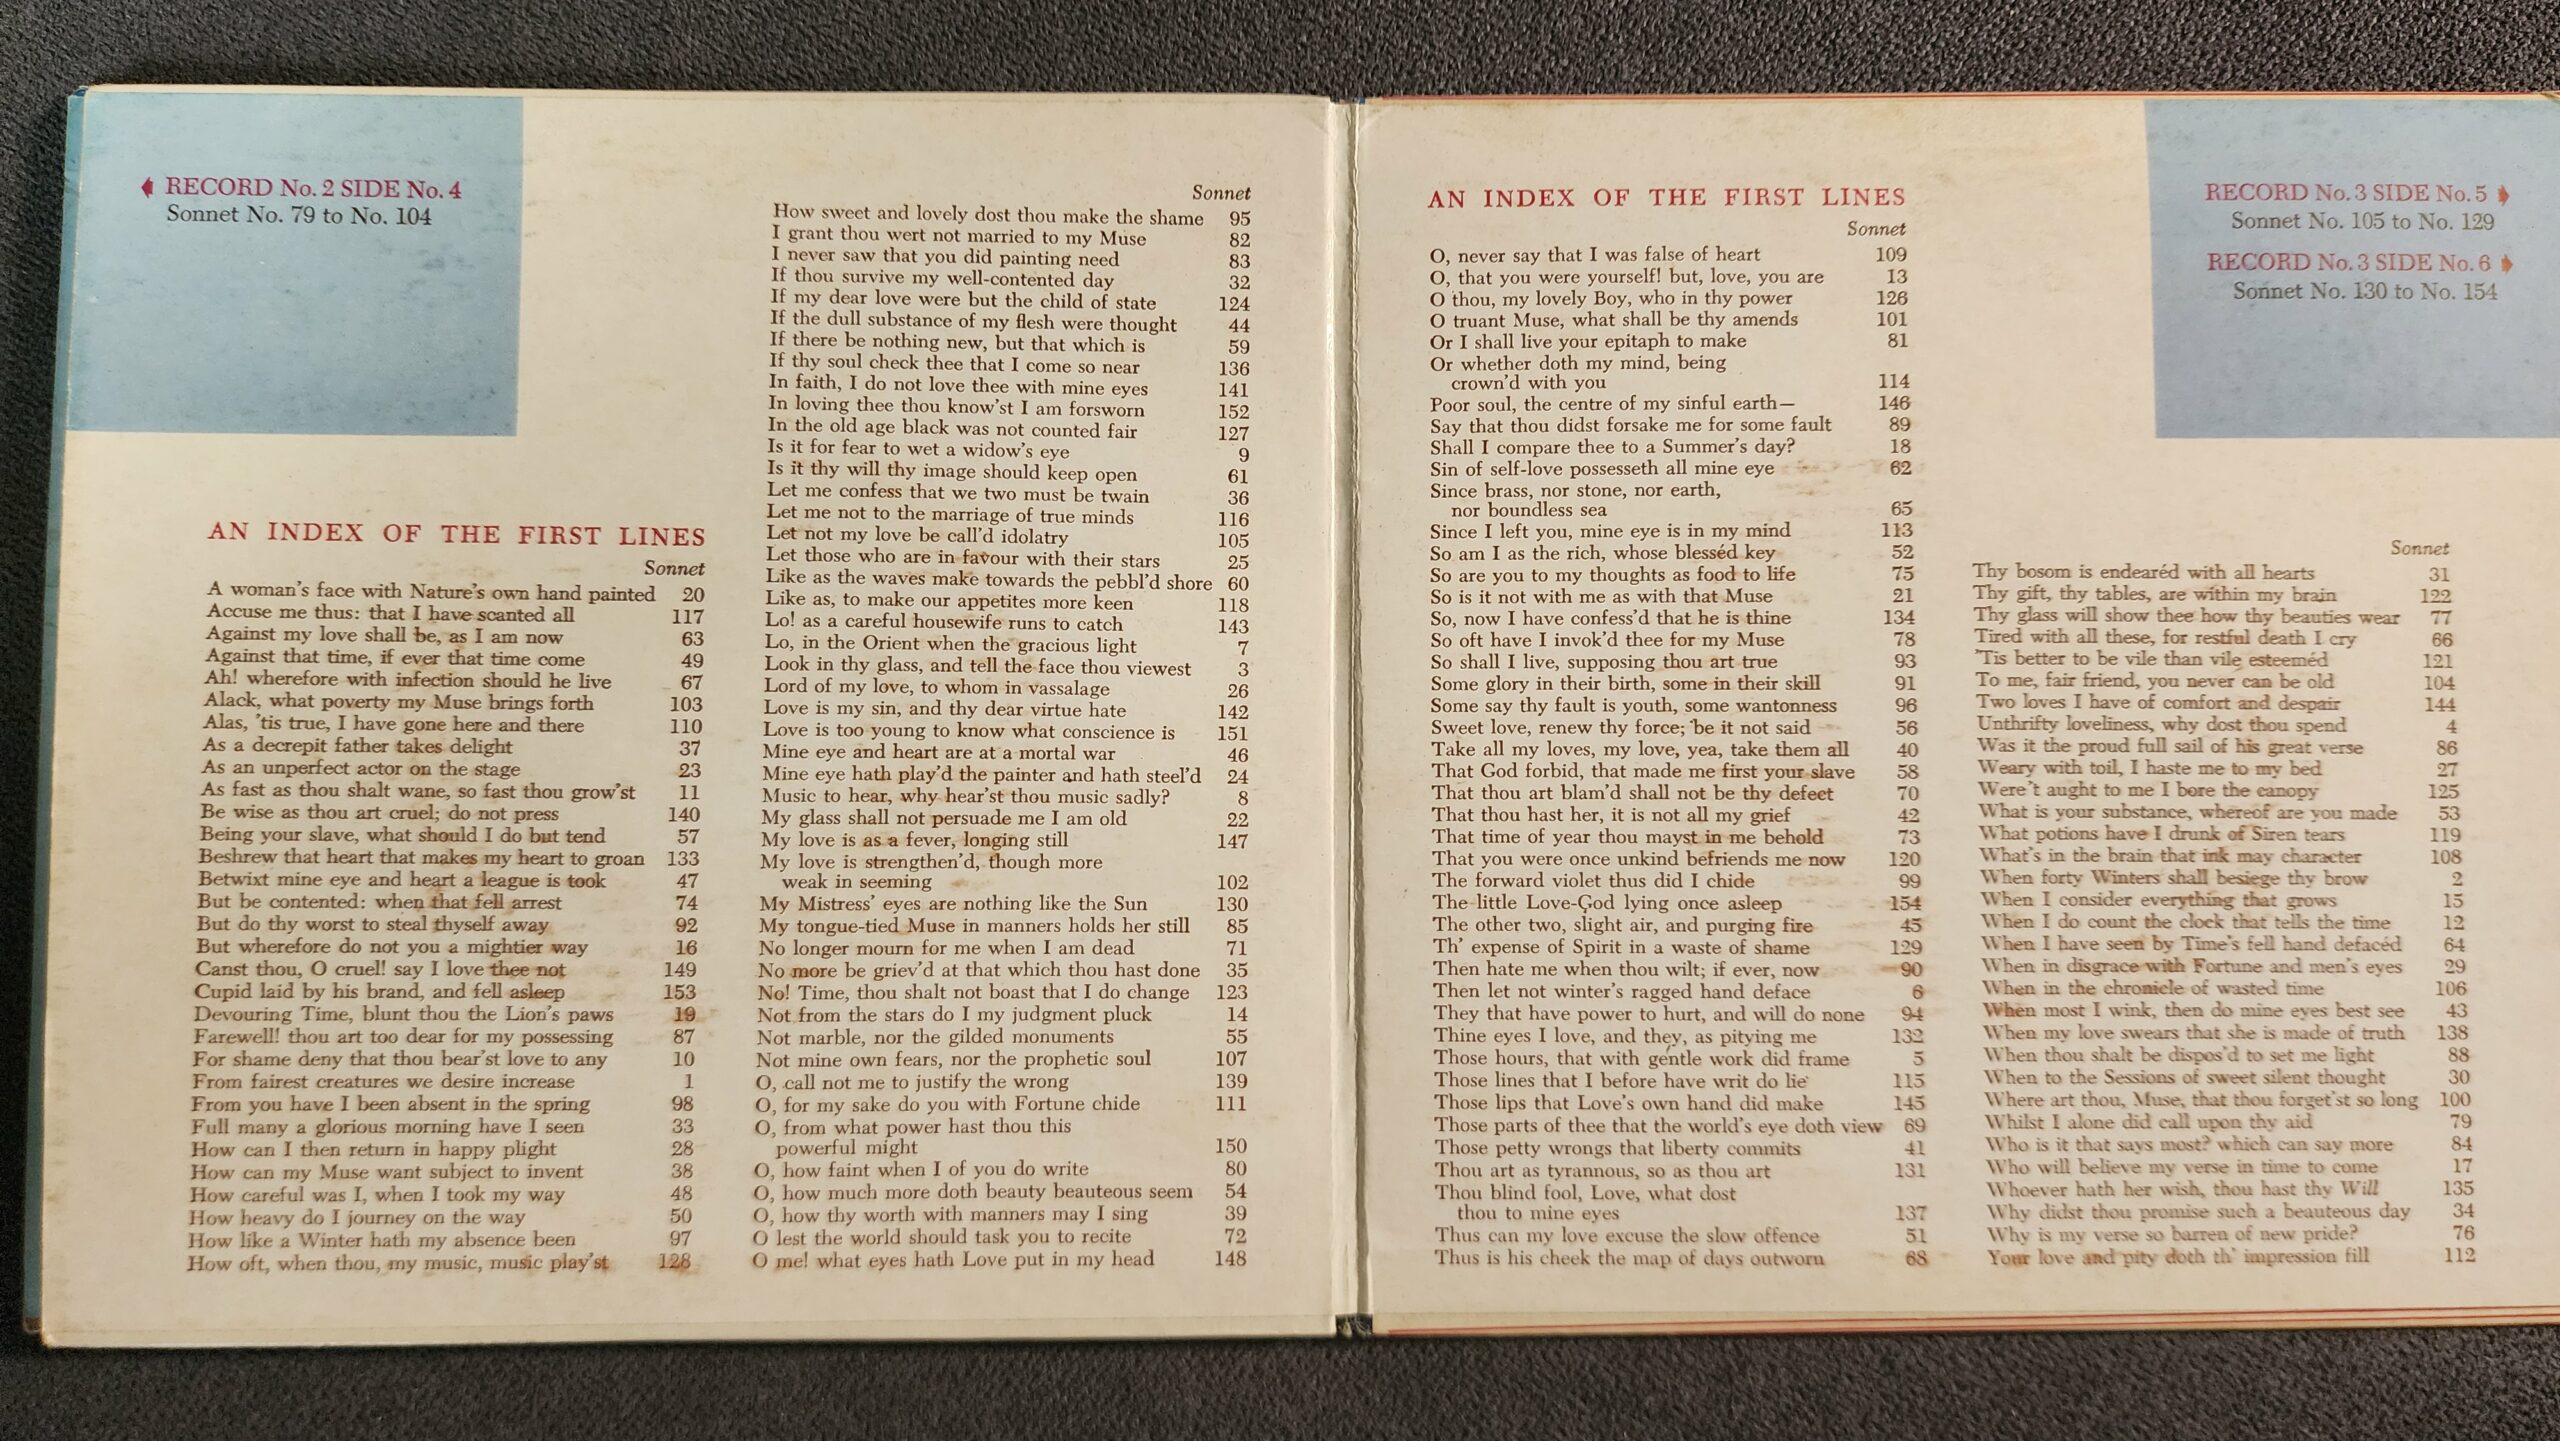 RECORD No. 2 SIDE No. 4
Sonnet No. 79 to No. 104
AN INDEX OF THE FIRST LINES
Sonnet
A woman's face with Nature's own hand painted 20
Accuse me thus: that I have scanted all 117
Against my love shall be, as I am now 63
Against that time, if ever that time come 49
Ah! wherefore with infection should he live 67
Alack, what poverty my Muse brings forth 103
Alas, 'tis true, I have gone here and there 110
As a decrepit father takes delight 37
As an unperfect actor on the stage 23
As fast as thou shalt wane, so fast thou grow'st 11
Be wise as thou art cruel; do not press 140
Being your slave, what should I do but tend 57
Beshrew that heart that makes my heart to groan 133
Betwixt mine eye and heart a league is took 47
But be contented: when that fell arrest 74
But do thy worst to steal thyself away 92
But wherefore do not you a mightier way 16
Canst thou, O cruel! say I love thee not 149
Cupid laid by his brand, and fell asleep 153
Devouring Time, blunt thou the Lion's paws 19
Farewell! thou art too dear for my possessing 87
For shame deny that thou bear'st love to any 10
From fairest creatures we desire increase 1
From you have I been absent in the spring 98
Full many a glorious morning have I seen 33
How can I then return in happy plight 28
How can my Muse want subject to invent 38
How careful was I, when I took my way 48
How heavy do I journey on the way 50
How like a Winter hath my absence been 97
How oft, when thou, my music, music play'st 128
Sonnet
How sweet and lovely dost thou make the shame 95
I grant thou wert not married to my Muse 82
I never saw that you did painting need 83
If thou survive my well-contented day 32
If my dear love were but the child of state 124
If the dull substance of my flesh were thought 44
If there be nothing new, but that which is 59
If thy soul check thee that I come so near 136
In faith, I do not love thee with mine eyes 141
In loving thee thou know'st I am forsworn 152
In the old age black was not counted fair 127
Is it for fear to wet a widow's eye 9
Is it thy will thy image should keep open 61
Let me confess that we two must be twain 36
Let me not to the marriage of true minds 116
Let not my love be call'd idolatry 105
Let those who are in favour with their stars 25
Like as the waves make towards the pebbl'd shore 60
Like as, to make our appetites more keen 118
Lo! as a careful housewife runs to catch 143
Lo, in the Orient when the gracious light 7
Look in thy glass, and tell the face thou viewest 3
Lord of my love, to whom in vassalage 26
Love is my sin, and thy dear virtue hate 142
Love is too young to know what conscience is 151
Mine eye and heart are at a mortal war 46
Mine eye hath play'd the painter and hath steel'd 24
Music to hear, why hear'st thou music sadly? 8
My glass shall not persuade me I am old 22
My love is as a fever, longing still 147
My love is strengthen'd, though more
weak in seeming 102
My Mistress' eyes are nothing like the Sun 130
My tongue-tied Muse in manners holds her still 85
No longer mourn for me when I am dead 71
No more be griev'd at that which thou hast done 35
No! Time, thou shalt not boast that I do change 123
Not from the stars do I my judgment pluck 14
Not marble, nor the gilded monuments 55
Not mine own fears, nor the prophetic soul 107
O, call not me to justify the wrong 139
O, for my sake do you with Fortune chide 111
O, from what power hast thou this
powerful might 150
O, how faint when I of you do write 80
O, how much more doth beauty beauteous seem 54
O, how thy worth with manners may I sing 39
O lest the world should task you to recite 72
O me! what eyes hath Love put in my head 148
AN INDEX OF THE FIRST LINES
Sonnet
O, never say that I was false of heart 109
O, that you were yourself! but, love, you are 13
O thou, my lovely Boy, who in thy power 126
O truant Muse, what shall be thy amends 101
Or I shall live your epitaph to make 81
Or whether doth my mind, being
crown'd with you 114
Poor soul, the centre of my sinful earth— 146
Say that thou didst forsake me for some fault 89
Shall I compare thee to a Summer's day? 18
Sin of self-love possesseth all mine eye 62
Since brass, nor stone, nor earth,
nor boundless sea 65
Since I left you, mine eye is in my mind 113
So am I as the rich, whose blesséd key 52
So are you to my thoughts as food to life 75
So is it not with me as with that Muse 21
So, now I have confess'd that he is thine 134
So oft have I invok'd thee for my Muse 78
So shall I live, supposing thou art true 93
Some glory in their birth, some in their skill 91
Some say thy fault is youth, some wantonness 96
Sweet love, renew thy force; be it not said 56
Take all my loves, my love, yea, take them all 40
That God forbid, that made me first your slave 58
That thou art blam'd shall not be thy defect 70
That thou hast her, it is not all my grief 42
That time of year thou mayst in me behold 73
That you were once unkind befriends me now 120
The forward violet thus did I chide 99
The little Love-God lying once asleep 154
The other two, slight air, and purging fire 45
Th' expense of Spirit in a waste of shame 129
Then hate me when thou wilt; if ever, now 90
Then let not winter's ragged hand deface 6
They that have power to hurt, and will do none 94
Thine eyes I love, and they, as pitying me 132
Those hours, that with gentle work did frame 5
Those lines that I before have writ do lie 115
Those lips that Love's own hand did make 145
Those parts of thee that the world's eye doth view 69
Those petty wrongs that liberty commits 41
Thou art as tyrannous, so as thou art 131
Thou blind fool, Love, what dost
thou to mine eyes 137
Thus can my love excuse the slow offence 51
Thus is his cheek the map of days outworn 68
RECORD No. 3 SIDE No. 5
Sonnet No. 105 to No. 129
RECORD No. 3 SIDE No. 6
Sonnet No. 130 to No. 154
Sonnet
Thy bosom is endearéd with all hearts 31
Thy gift, thy tables, are within my brain 122
Thy glass will show thee how thy beauties wear 77
Tired with all these, for restful death I cry 66
'Tis better to be vile than vile esteeméd 121
To me, fair friend, you never can be old 104
Two loves I have of comfort and despair 144
Unthrifty loveliness, why dost thou spend 4
Was it the proud full sail of his great verse 86
Weary with toil, I haste me to my bed 27
Were't aught to me I bore the canopy 125
What is your substance, whereof are you made 53
What potions have I drunk of Siren tears 119
What's in the brain that ink may character 108
When forty Winters shall besiege thy brow 2
When I consider everything that grows 15
When I do count the clock that tells the time 12
When I have seen by Time's fell hand defacéd 64
When in disgrace with Fortune and men's eyes 29
When in the chronicle of wasted time 106
When most I wink, then do mine eyes best see 43
When my love swears that she is made of truth 138
When thou shalt be dispos'd to set me light 88
When to the Sessions of sweet silent thought 30
Where art thou, Muse, that thou forget'st so long 100
Whilst I alone did call upon thy aid 79
Who is it that says most? which can say more 84
Who will believe my verse in time to come 17
Whoever hath her wish, thou hast thy Will 135
Why didst thou promise such a beauteous day 34
Why is my verse so barren of new pride? 76
Your love and pity doth th' impression fill 112